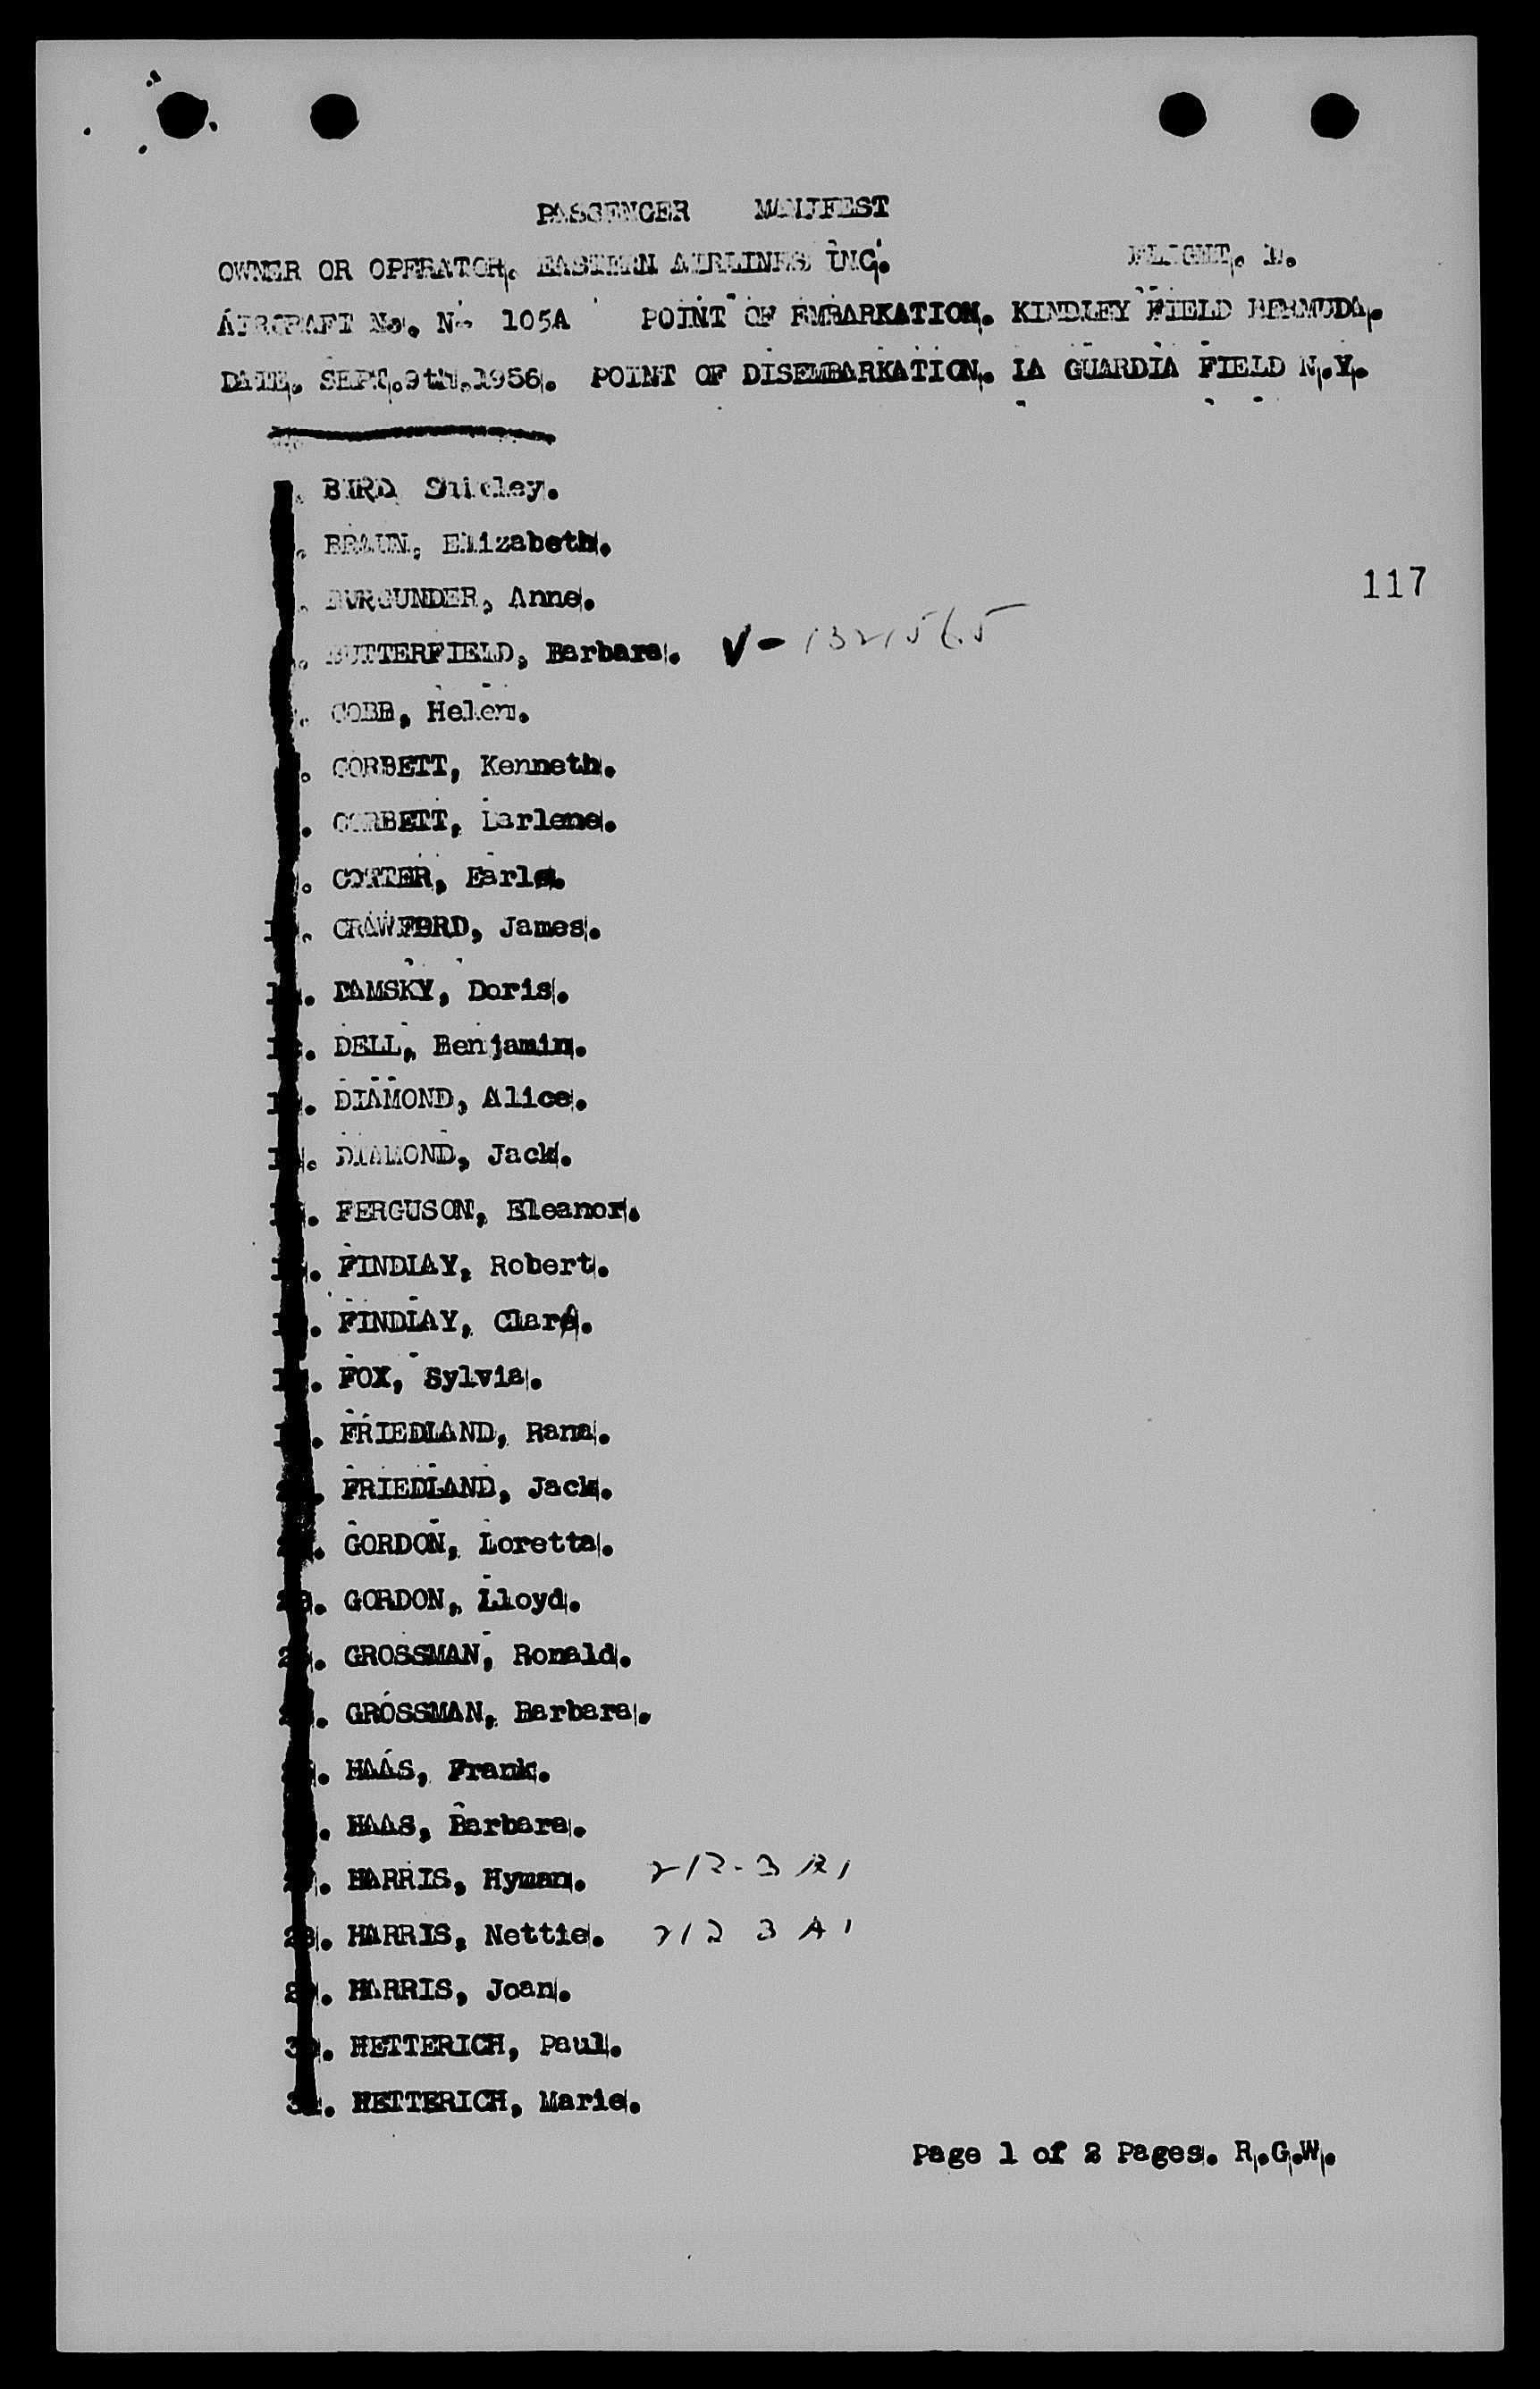 PASSENGER MANIFEST
OWNER OR OPERATOR. EASTERN AIRLINES INC. FLIGHT.
AIRCRAFT No. N- 105A POINT OF EMBARKATION. KINDLEY FIELD BERMUDA.
DATE. SEPT.9th.1956. POINT OF DISEMBARKATION. LA GUARDIA FIELD N.Y.
. BIRD Shirley.
. BRAUN, Elizabeth.
. BURGUNDER, Anne.
117
. BUTTERFIELD, Barbara. V-
. COBB, Helen.
. CORBETT, Kenneth.
. CORBETT, Darlene.
. COTTER, Earle.
. CRAWFORD, James.
. DAMSKY, Doris.
. DELL, Benjamin.
. DIAMOND, Alice.
. DIAMOND, Jack.
. FERGUSON, Eleanor.
. FINDLAY, Robert.
. FINDLAY, Clara.
. FOX, Sylvia.
. FRIEDLAND, Rana.
. FRIEDLAND, Jack.
. GORDON, Loretta.
. GORDON, Lloyd.
. GROSSMAN, Ronald.
. GROSSMAN, Barbara.
. HAAS, Frank.
. HAAS, Barbara.
. HARRIS, Hyman. 212-3 A1
28. HARRIS, Nettie. 212 3 A1
29. HARRIS, Joan.
30. HETTERICH, Paul.
31. HETTERICH, Marie.
Page 1 of 2 Pages. R.G.W.